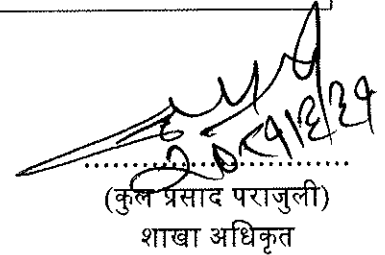 २०८१।३।२१
(कुल प्रसाद पराजुली)
शाखा अधिकृत